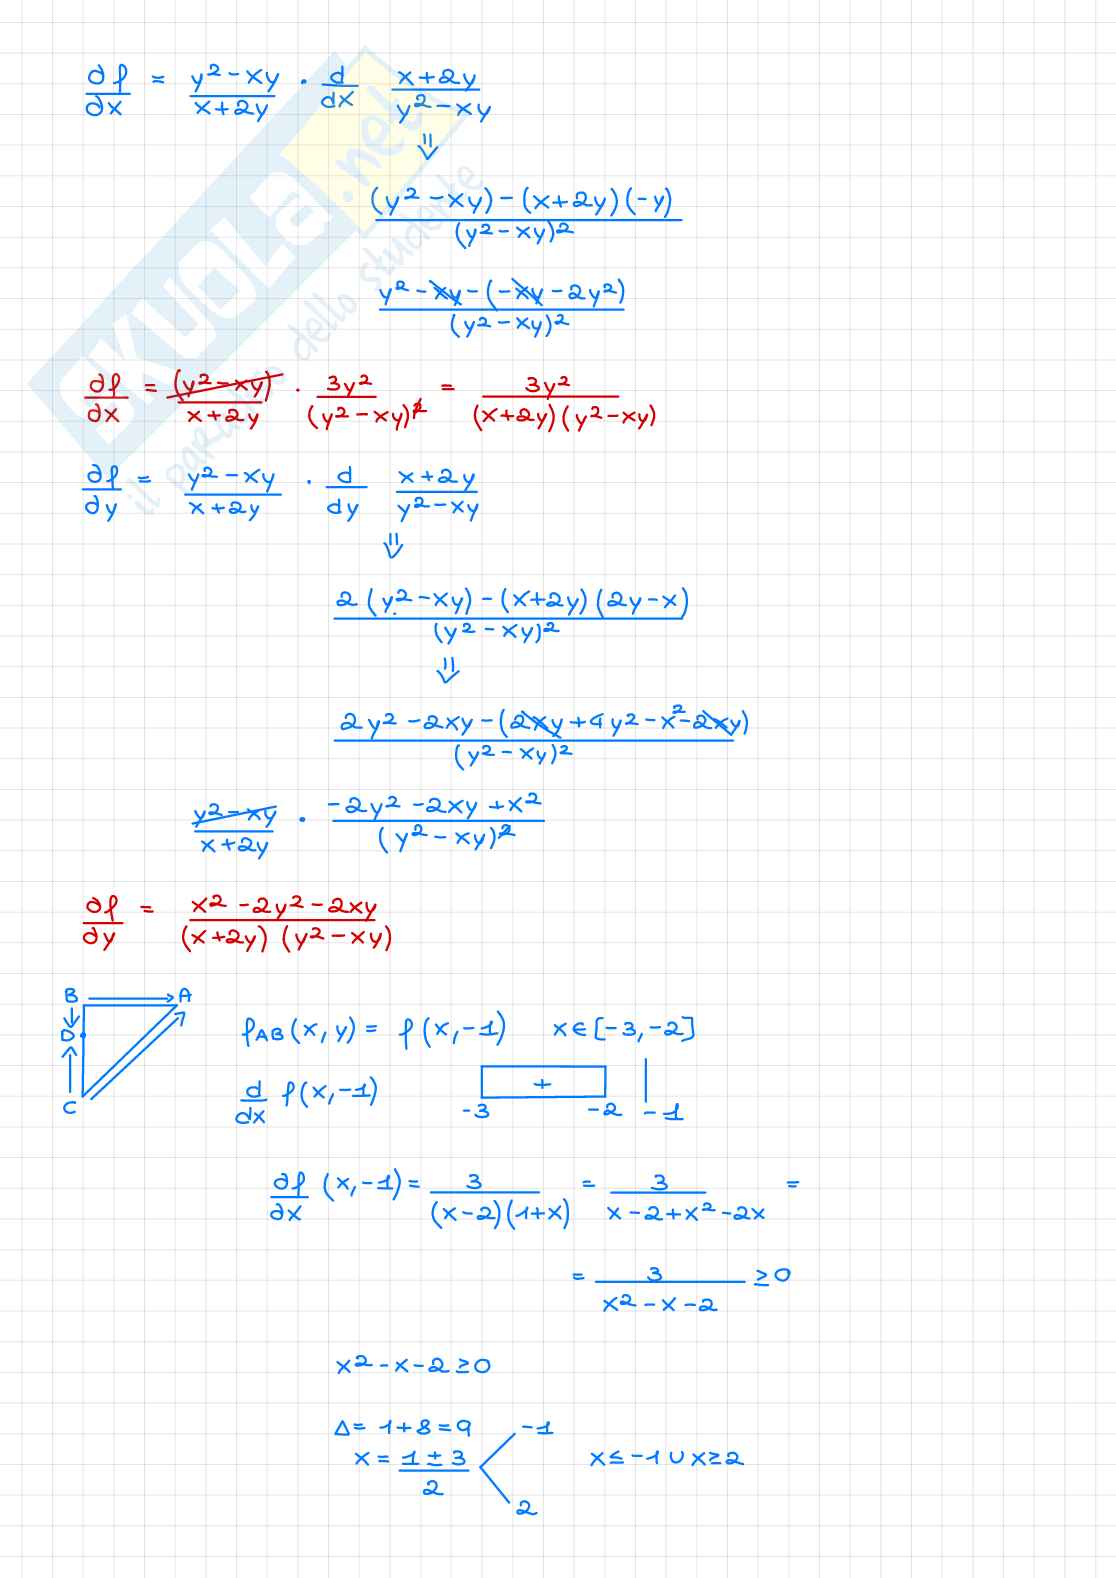 ∂f/∂x = (y² - xy)/(x + 2y) · d/dx (x + 2y)/(y² - xy)
⇓
((y² - xy) - (x + 2y)(-y))/(y² - xy)²
(y² - xy - (-xy - 2y²))/(y² - xy)²
∂f/∂x = (y² - xy)/(x + 2y) · 3y²/(y² - xy)² = 3y²/((x + 2y)(y² - xy))
∂f/∂y = (y² - xy)/(x + 2y) · d/dy (x + 2y)/(y² - xy)
⇓
(2(y² - xy) - (x + 2y)(2y - x))/(y² - xy)²
⇓
(2y² - 2xy - (2xy + 4y² - x² - 2xy))/(y² - xy)²
(y² - xy)/(x + 2y) · (-2y² - 2xy + x²)/(y² - xy)²
∂f/∂y = (x² - 2y² - 2xy)/((x + 2y)(y² - xy))
B → A
D
C
f_AB(x, y) = f(x, -1) x ∈ [-3, -2]
d/dx f(x, -1)
+
-3 -2 -1
∂f/∂x (x, -1) = 3/((x - 2)(1 + x)) = 3/(x - 2 + x² - 2x) =
= 3/(x² - x - 2) ≥ 0
x² - x - 2 ≥ 0
Δ = 1 + 8 = 9
-1
x = (1 ± 3)/2 x ≤ -1 ∪ x ≥ 2
2
SKUOLA.net
il paradiso dello studente